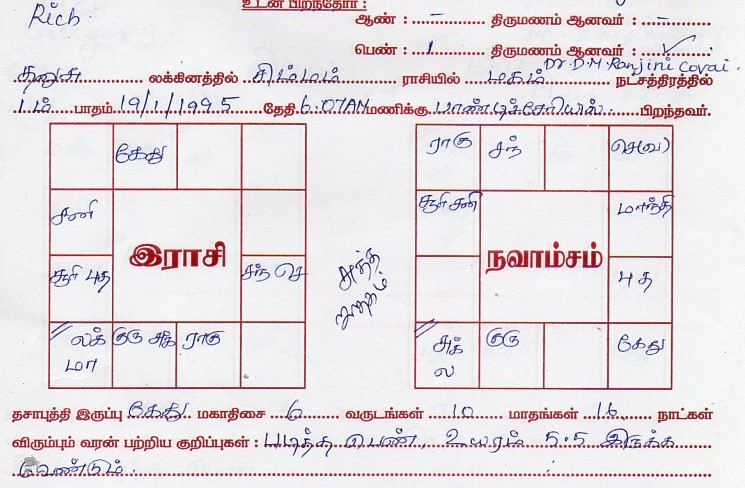 Rich
உடன் பிறந்தோர் :
ஆண் : – திருமணம் ஆனவர் : –
பெண் : 1 திருமணம் ஆனவர் : ✓
Dr. D.M. Ranjini Covai.
தனுசு லக்கினத்தில் சிம்மம் ராசியில் மகம் நட்சத்திரத்தில்
1ம் பாதம் 19/1/1995 தேதி 6:07AM மணிக்கு பாண்டிச்சேரியில் பிறந்தவர்.
கேது
சனி
இராசி
சூரி புத
சந் செ
லக் மா
குரு சுக்
ராகு
ராகு
சந்
செ(வ)
சூரி சனி
மாந்தி
நவாம்சம்
புத
சுக் ல
குரு
கேது
தசாபுத்தி இருப்பு கேது மகாதிசை 6 வருடங்கள் 10 மாதங்கள் 16 நாட்கள்
விரும்பும் வரன் பற்றிய குறிப்புகள் : படித்த பெண், உயரம் 5.5 இருக்க
வேண்டும்.